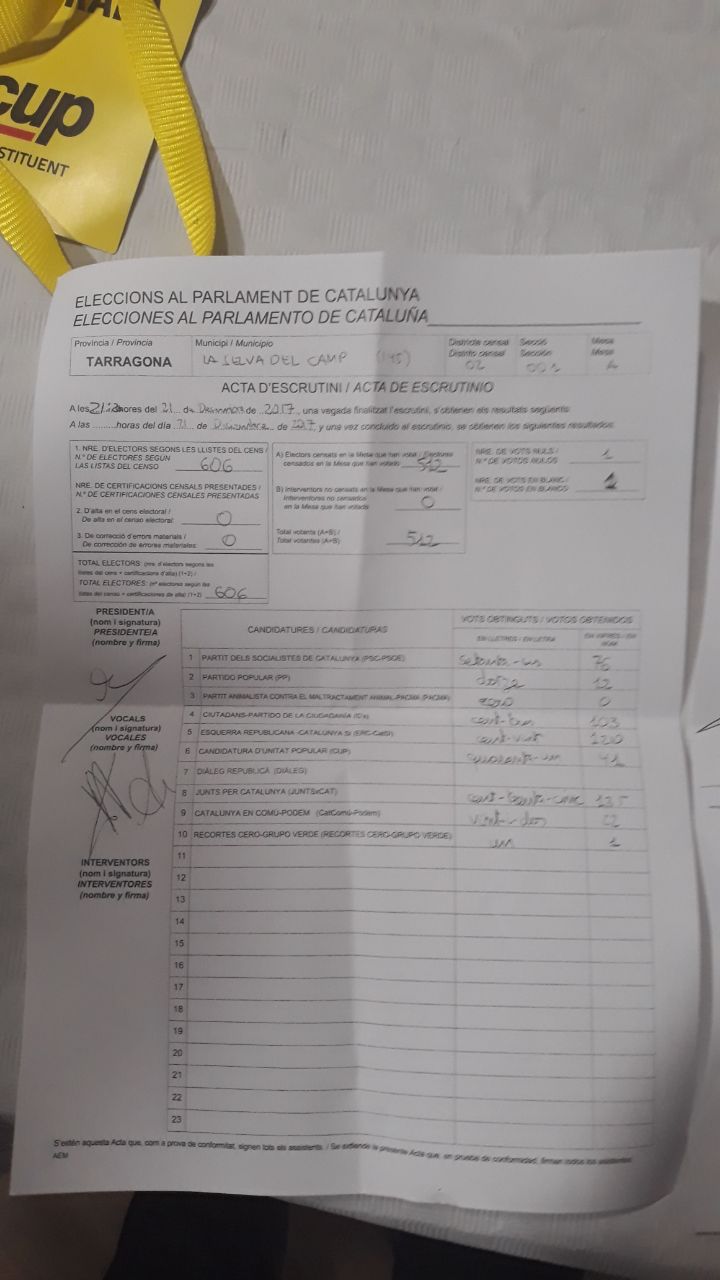 cup
STITUENT
ELECCIONS AL PARLAMENT DE CATALUNYA
ELECCIONES AL PARLAMENTO DE CATALUÑA
Província / Provincia
Municipi / Municipio
Districte censal Secció Mesa
Distrito censal Sección Mesa
TARRAGONA LA SELVA DEL CAMP (145) 02 001 A
ACTA D'ESCRUTINI / ACTA DE ESCRUTINIO
A les 21:30 hores del 21 de Desembre de 2017, una vegada finalitzat l'escrutini, s'obtenen els resultats següents:
A las ........horas del día 21 de de 2017 y una vez concluido el escrutinio, se obtienen los siguientes resultados:
1. NRE. D'ELECTORS SEGONS LES LLISTES DEL CENS /
N.º DE ELECTORES SEGÚN
LAS LISTAS DEL CENSO 606
NRE. DE CERTIFICACIONS CENSALS PRESENTADES /
N.º DE CERTIFICACIONES CENSALES PRESENTADAS
2. D'alta en el cens electoral /
De alta en el censo electoral: 0
3. De correcció d'errors materials /
De corrección de errores materiales: 0
TOTAL ELECTORS: (nre. d'electors segons les
llistes del cens + certificacions d'alta) (1+2) /
TOTAL ELECTORES: (nº electores según las
listas del censo + certificaciones de alta) (1+2) 606
A) Electors censats en la Mesa que han votat / Electores
censados en la Mesa que han votado 512
B) Interventors no censats en la Mesa que han votat /
Interventores no censados
en la Mesa que han votado 0
Total votants (A+B) /
Total votantes (A+B) 512
NRE. DE VOTS NULS /
N.º DE VOTOS NULOS 1
NRE. DE VOTS EN BLANC /
N.º DE VOTOS EN BLANCO
PRESIDENT/A
(nom i signatura)
PRESIDENTE/A
(nombre y firma)
VOCALS
(nom i signatura)
VOCALES
(nombre y firma)
INTERVENTORS
(nom i signatura)
INTERVENTORES
(nombre y firma)
CANDIDATURES / CANDIDATURAS VOTS OBTINGUTS / VOTOS OBTENIDOS
EN LLETRES / EN LETRA
1 PARTIT DELS SOCIALISTES DE CATALUNYA (PSC-PSOE)
2 PARTIDO POPULAR (PP) dotze 12
3 PARTIT ANIMALISTA CONTRA EL MALTRACTAMENT ANIMAL-PACMA (PACMA) zero 0
4 CIUTADANS-PARTIDO DE LA CIUDADANÍA (C's) cent-tres 103
5 ESQUERRA REPUBLICANA-CATALUNYA SÍ (ERC-CatSí) cent-vint 120
6 CANDIDATURA D'UNITAT POPULAR (CUP) quaranta-un 41
7 DIÀLEG REPUBLICÀ (DIÀLEG)
8 JUNTS PER CATALUNYA (JUNTSxCAT) cent-trenta-cinc 135
9 CATALUNYA EN COMÚ-PODEM (CatComú-Podem) vint-i-dos 22
10 RECORTES CERO-GRUPO VERDE (RECORTES CERO-GRUPO VERDE) un 1
11
12
13
14
15
16
17
18
19
20
21
22
23
S'estén aquesta Acta que, com a prova de conformitat, signen tots els assistents. / Se extiende la presente Acta que, en prueba de conformidad, firman todos los asistentes.
AEM